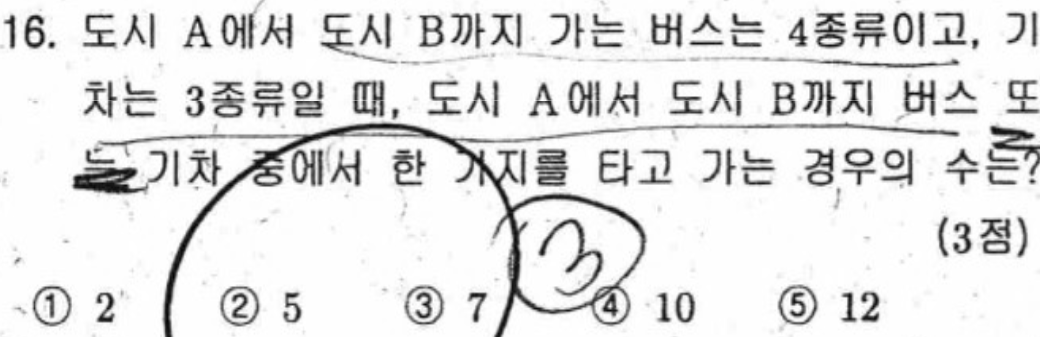 16. 도시 A에서 도시 B까지 가는 버스는 4종류이고, 기
차는 3종류일 때, 도시 A에서 도시 B까지 버스 또
는 기차 중에서 한 가지를 타고 가는 경우의 수는?
(3점)
3
① 2 ② 5 ③ 7 ④ 10 ⑤ 12